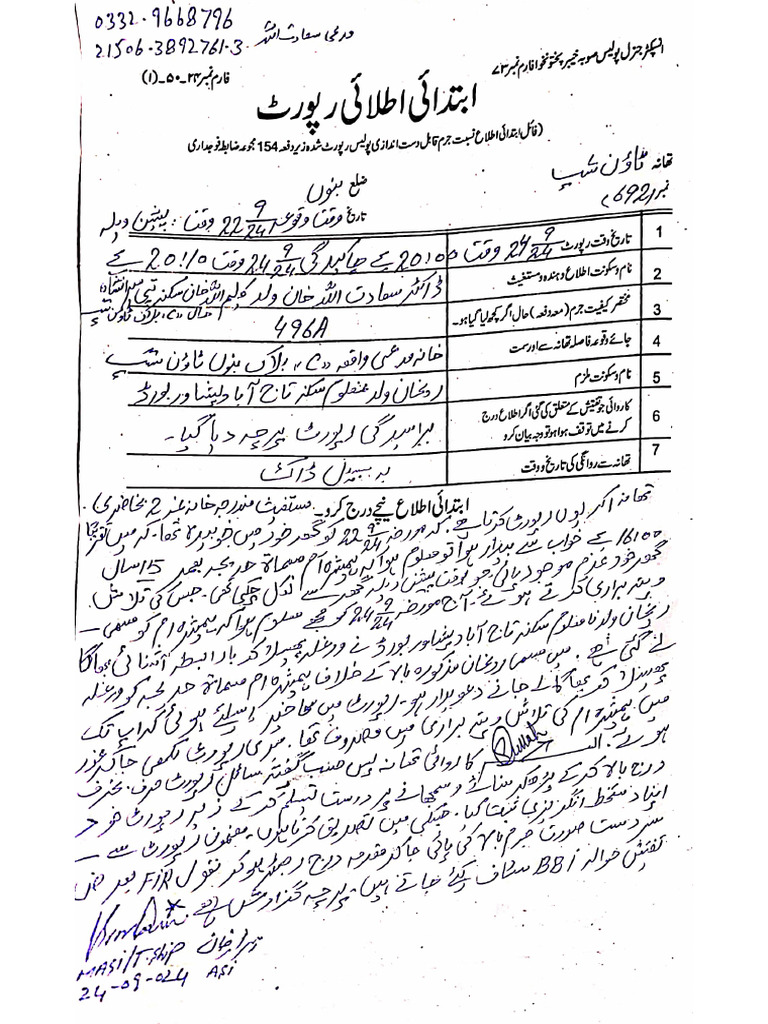 0332-9668796
مدعی سعادت اللہ
21506-3892761-3
انسپکٹر جنرل پولیس صوبہ خیبر پختونخوا فارم نمبر ۷۳
فارم نمبر ۲۴-۵۰-(۱)
ابتدائی اطلائی رپورٹ
(فائل ابتدائی اطلاع نسبت جرم قابل دست اندازی پولیس رپورٹ شدہ زیر دفعہ 154 مجموعہ ضابطہ فوجداری
تھانہ ٹاؤن شپ
ضلع بنوں
نمبر 692
تاریخ وقت وقوعہ 22 9/24 وقت: پیشن ویلہ
1 تاریخ وقت رپورٹ 24 9/24 وقت 20:00 بجے چاکیدگی 24 9/24 وقت 20:10 بجے
2 نام و سکونت اطلاع دہندہ و مستغیث ڈاکٹر سعادت اللہ خان ولد کولیم اللہ خان سکنہ
3 مختصر کیفیت جرم (معہ دفعہ) حال اگر کچھ لیا گیا ہو۔ 496A
4 جائے وقوعہ فاصلہ تھانہ سے اور سمت خانہ مدعی واقعہ "C" بلاک بنوں ٹاؤن شپ
5 نام و سکونت ملزم ریخان ولد نامعلوم سکنہ تاج آباد پشاور بورڈ
6 کاروائی جو تفتیش کے متعلق کی گئی اگر اطلاع درج کرنے میں توقف ہوا ہو تو وجہ بیان کرو برامیدگی رپورٹ پرچہ دیا گیا۔
7 تھانہ سے روانگی کی تاریخ و وقت بہ سبیل ڈاک
ابتدائی اطلاع نیچے درج کرو۔ مستغیث مندرجہ خانہ نمبر 2 بحاضری
تھانہ آکر یوں رپورٹ کرتا ہے۔ کہ مورخہ 22 9/24 کو گھر خود میں خوابیدہ تھا۔ کہ میں تقریباً
16:00 بجے خواب سے بیدار ہوا تو معلوم ہوا کہ ہمشیرہ ام مسماۃ خدیجہ بعمر 15 سال
گھر خود عدم موجود پائی جو بوقت پیشن ویلہ گھر سے نکل چکی تھی۔ جس کی تلاش
وپتہ براری کرتے ہوئے۔ آج مورخہ 24 9/24 کو مجھے معلوم ہوا کہ ہمشیرہ ام کو مسمی
ریخان ولد نامعلوم سکنہ تاج آباد پشاور بورڈ نے ورغلا پھسلا کر
لے گئی ہے۔ میں مسمی ریخان مذکورہ بالا کے خلاف ہمشیرہ ام مسماۃ خدیجہ کو ورغلا
پھسلا کر بھگا لے جانے دعویدار ہوں۔ رپورٹ میں تاخیر اسلئے ہوئی کہ اب تک
میں ہمشیرہ ام کی تلاش وپتہ براری میں مصروف تھا۔ میری رپورٹ لکھی جاکر غور
ہو۔ کاروائی تھانہ پس حسب گفتہ سائل رپورٹ حرف بحرف
درج بالا کرکے پڑھ کر سنائے و سمجھانے پر درست تسلیم کرکے زیر رپورٹ خود
اپنا دستخط انگریزی ثبت کیا۔ جسکی میں تصدیق کرتا ہوں۔ مضمون رپورٹ سے
سر دست صورت جرم بالا کی پائی جاکر مقدمہ درج رجسٹر ہو کر نقول FIR بغرض
تفتیش حوالہ BBI سٹاف کئے جاتے ہیں۔ پرچہ گزارش ہے
MASI/T.Ship
ASI
24-09-024